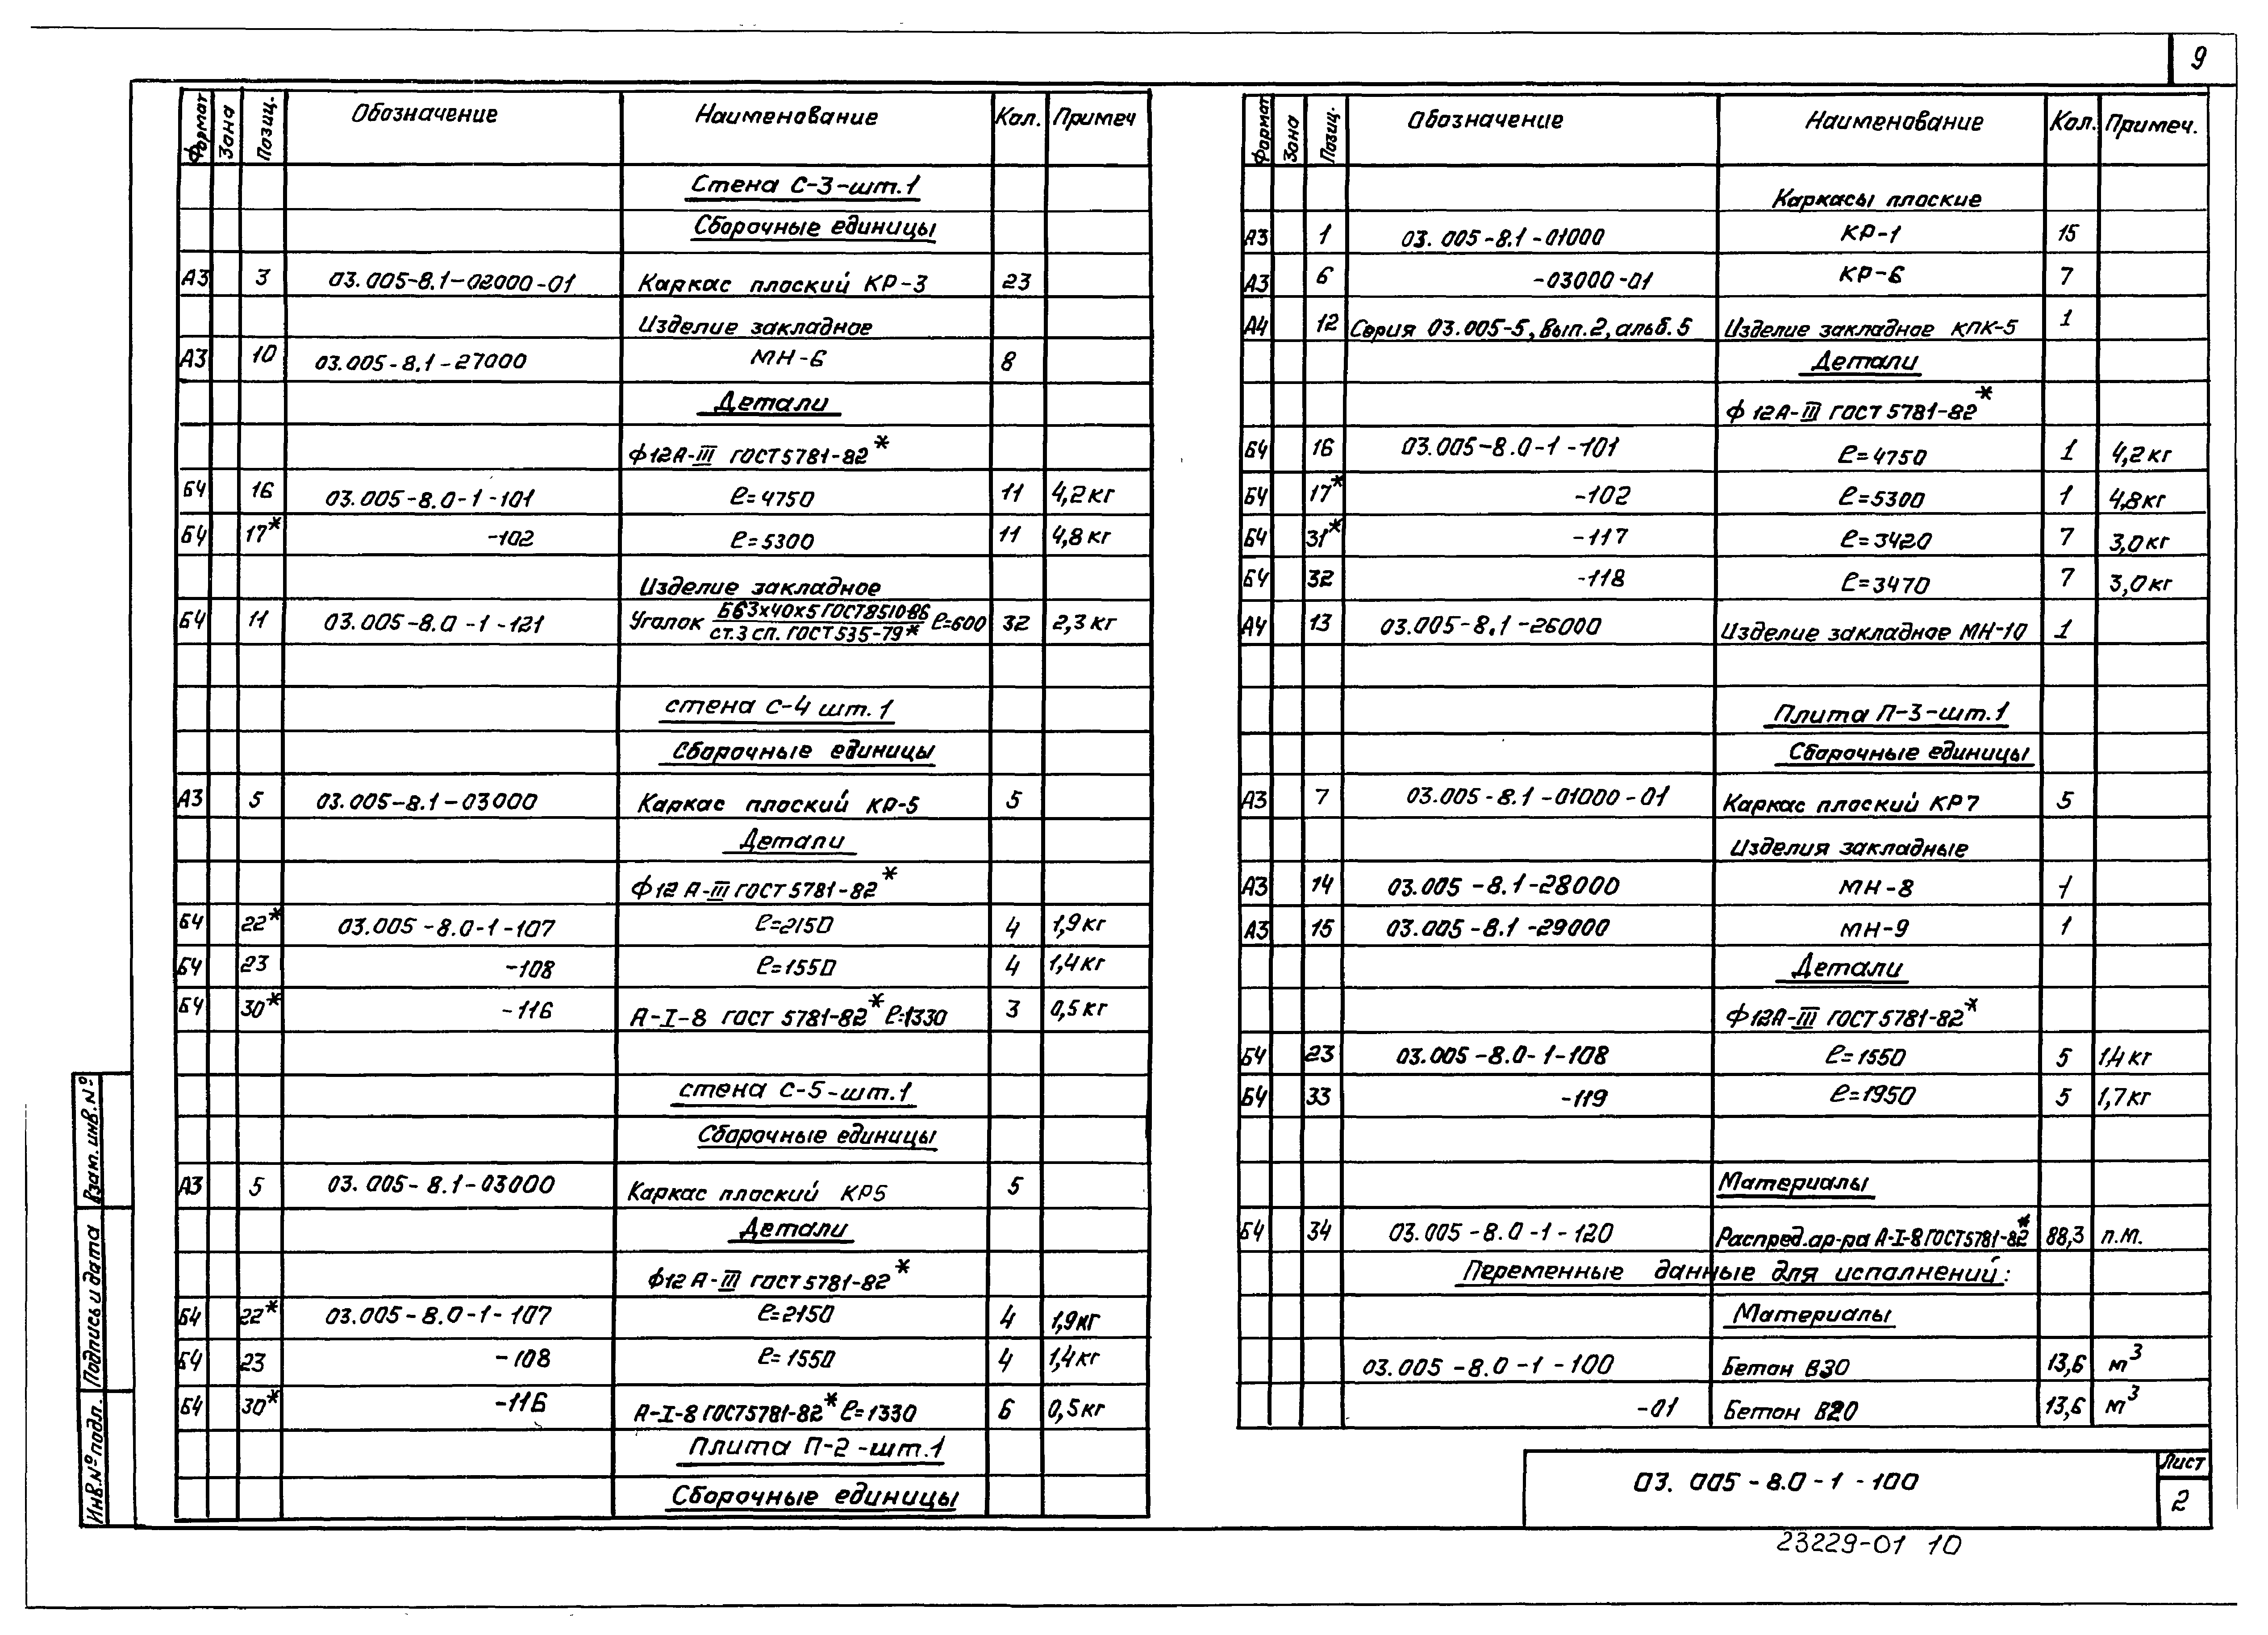 9
Формат Зона Позиц. Обозначение Наименование Кол. Примеч
Стена С-3-шт.1
Сборочные единицы
А3 3 03.005-8.1-02000-01 Каркас плоский КР-3 23
Изделие закладное
А3 10 03.005-8.1-27000 МН-6 8
Детали
Ф12А-III ГОСТ 5781-82*
Б4 16 03.005-8.0-1-101 ℓ=4750 11 4,2кг
Б4 17* -102 ℓ=5300 11 4,8кг
Изделие закладное
Б4 11 03.005-8.0-1-121 Уголок Б63х40х5 ГОСТ 8510-86 / ст.3 сп. ГОСТ 535-79* ℓ=600 32 2,3кг
стена С-4 шт.1
Сборочные единицы
А3 5 03.005-8.1-03000 Каркас плоский КР-5 5
Детали
Ф12 А-III ГОСТ 5781-82*
Б4 22* 03.005-8.0-1-107 ℓ=2150 4 1,9кг
Б4 23 -108 ℓ=1550 4 1,4кг
Б4 30* -116 А-I-8 ГОСТ 5781-82* ℓ=1330 3 0,5кг
стена С-5-шт.1
Сборочные единицы
А3 5 03.005-8.1-03000 Каркас плоский КР5 5
Детали
Ф12 А-III ГОСТ 5781-82*
Б4 22* 03.005-8.0-1-107 ℓ=2150 4 1,9кг
Б4 23 -108 ℓ=1550 4 1,4кг
Б4 30* -116 А-I-8 ГОСТ5781-82* ℓ=1330 6 0,5кг
Плита П-2-шт.1
Сборочные единицы
Формат Зона Позиц. Обозначение Наименование Кол. Примеч.
Каркасы плоские
А3 1 03.005-8.1-01000 КР-1 15
А3 6 -03000-01 КР-6 7
А4 12 Серия 03.005-5, Вып.2, альб.5 Изделие закладное КПК-5 1
Детали
Ф 12А-III ГОСТ 5781-82*
Б4 16 03.005-8.0-1-101 ℓ=4750 1 4,2кг
Б4 17* -102 ℓ=5300 1 4,8кг
Б4 31* -117 ℓ=3420 7 3,0кг
Б4 32 -118 ℓ=3470 7 3,0кг
А4 13 03.005-8.1-26000 Изделие закладное МН-10 1
Плита П-3-шт.1
Сборочные единицы
А3 7 03.005-8.1-01000-01 Каркас плоский КР7 5
Изделия закладные
А3 14 03.005-8.1-28000 МН-8 1
А3 15 03.005-8.1-29000 МН-9 1
Детали
Ф12А-III ГОСТ 5781-82*
Б4 23 03.005-8.0-1-108 ℓ=1550 5 1,4кг
Б4 33 -119 ℓ=1950 5 1,7кг
Материалы
Б4 34 03.005-8.0-1-120 Распред.ар-ра А-I-8 ГОСТ5781-82* 88,3 п.м.
Переменные данные для исполнений:
Материалы
03.005-8.0-1-100 Бетон В30 13,6 м³
-01 Бетон В20 13,6 м³
Взам. инв. №
Подпись и дата
Инв.№ подл.
03.005-8.0-1-100
Лист
2
23229-01 10